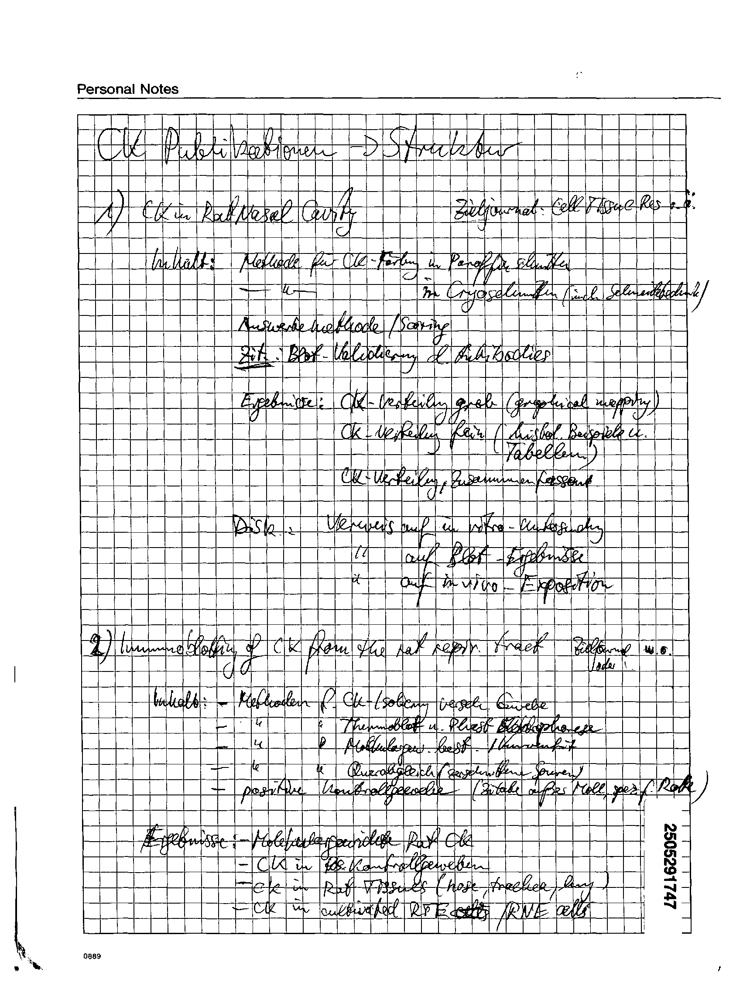 Personal Notes
CK Publikationen -> Struktur
1) CK in Rat Nasal Cavity Zieljournal: Cell Tissue Res o.ä.
Inhalt: Methode für CK-Färbung in Paraffinschnitten
— " — in Cryoschnitten (inch
Auswertemethode / Scoring
Zit: Blot-Validierung d Antibodies
Ergebnisse: CK-Verteilung grob (graphical mapping)
CK-Verteilung fein ( Beispiele u.
Tabellen)
CK-Verteilung, zusammenfassend
Disk: Verweis auf in vitro-Untersuchung
" auf Blot-Ergebnisse
" auf in vivo-Exposition
2) Immunoblotting of CK from the rat respir. tract Zieljournal w.o.
oder
Inhalt: - Methoden f. CK-Isolierung versch Gewebe
- " " Thermoblot u. Phast Elektrophorese
- " f Molekulargew. best. /
- " " Querabgleich (verschiedene Spuren)
- positive Kontrollgewebe (Zitate Moll, spez f. Ratte)
Ergebnisse: - Molekulargewichte Rat CK
- CK in Kontrollgeweben
- CK in Rat Tissues (nose, trachea, lung)
- CK in cultivated RTE /RNE cells
2505291747
0889